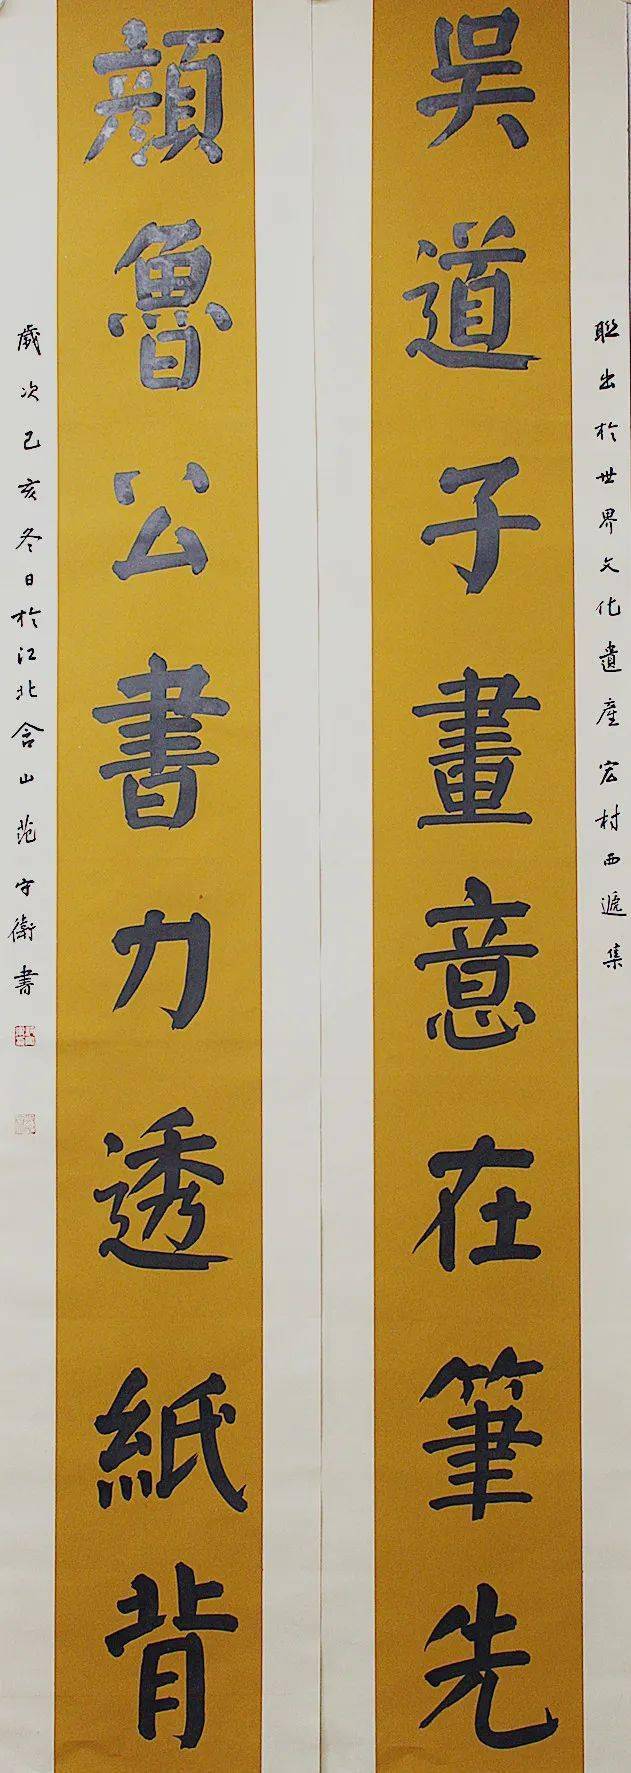 聯出於世界文化遺產宏村西遞集
吳道子畫意在筆先
顏魯公書力透紙背
歲次己亥冬日於江北含山范守衛書